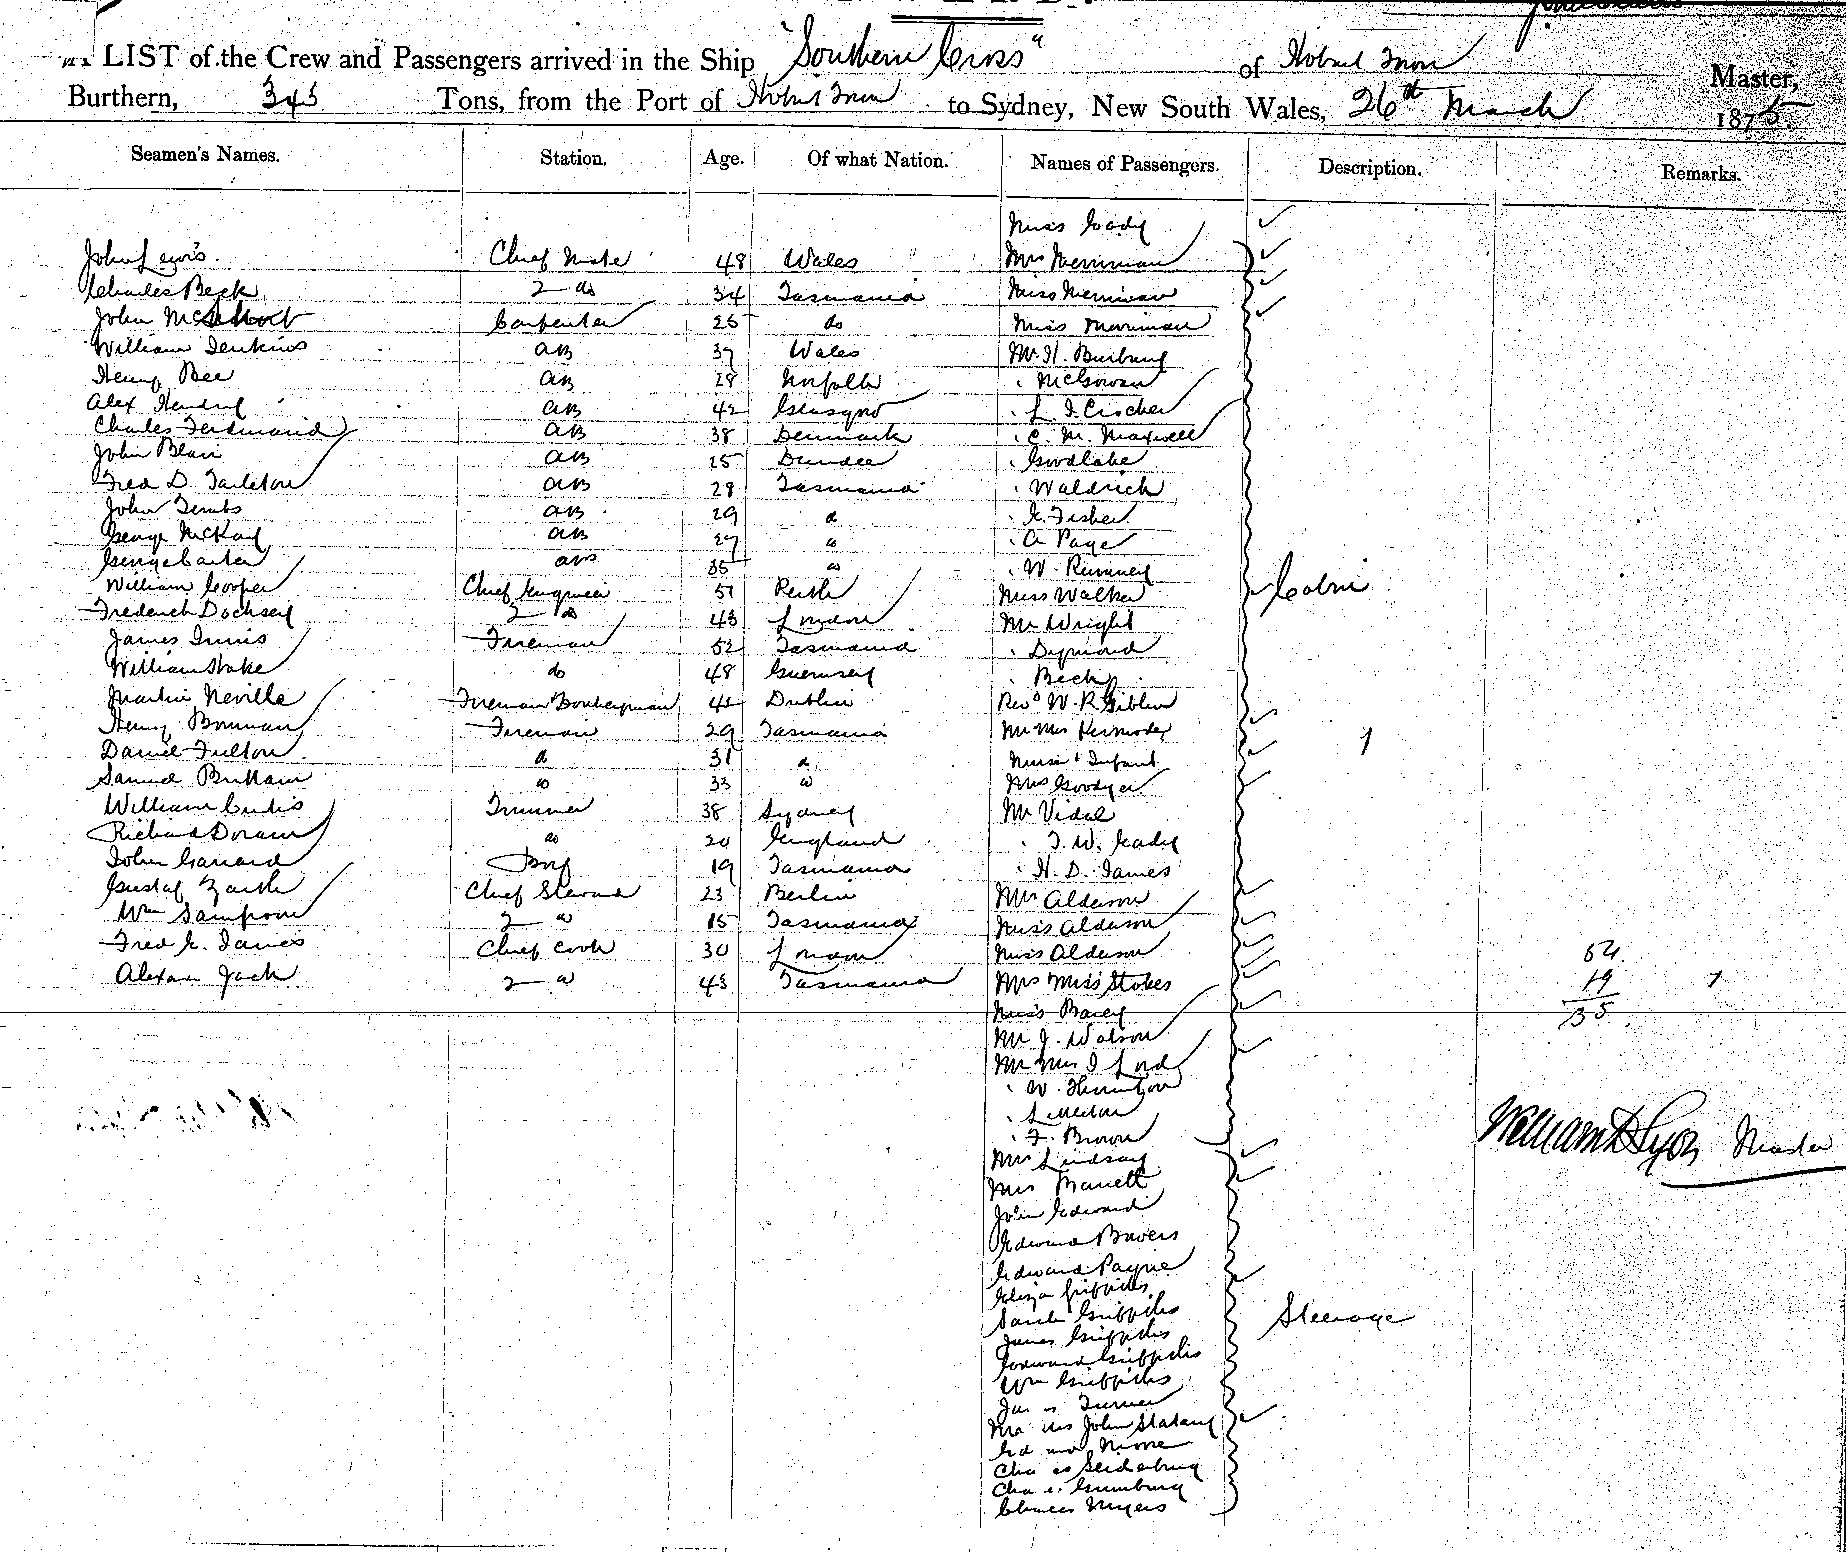 LIST of the Crew and Passengers arrived in the Ship "Southern Cross" of Hobart Town Master,
Burthern, 345 Tons, from the Port of Hobart Town to Sydney, New South Wales, 26th March 1875
Seamen's Names. Station. Age. Of what Nation. Names of Passengers. Description. Remarks.
Miss Coady
John Lewis. Chief Mate 48 Wales Mrs Merriman
Charles Beck 2 do 34 Tasmania Miss Merriman
John Carpenter 25 do Miss Merriman
William Jenkins AB 37 Wales Mr H. Burbury
Henry Bee AB 28 Norfolk " McGowan
Alex Hendry AB 42 Glasgow "
Charles Ferdinand AB 38 Denmark " C. M. Maxwell
John Blair AB 25 Dundee " Goodlake
Fred D. Tarleton AB 28 Tasmania " Waldrick
John AB 29 do " E. Fisher
George McKay AB 27 do " A Page
George Carter AB 35 do " W. Rumney
William Cooper Chief Engineer 51 Perth Miss Walker Cabin
Frederick Docksey 2 do 43 London Mr Wright
James Innis Fireman 52 Tasmania " Dymond
William Stake do 48 Guernsey " Beck
Martin Neville Fireman Donkeyman 41 Dublin Revd W. R. Giblin
Henry Bowman Fireman 29 Tasmania Mr Mrs Kermode 1
Daniel Fulton do 31 do Nurse & Infant
Samuel Brittain do 33 do Mrs Goodyer
William Curtis Trimmer 38 Sydney Mr Vidal
Richard Doran do 20 England " T. W. Eady
John Garrard Boy 19 Tasmania " H. D. James
Gustaf Chief Steward 23 Berlin Mrs Alderson
Wm Sampson 2 do 15 Tasmania Miss Alderson
Fred E. James Chief Cook 30 London Miss Alderson 54
Alexan Jack 2 do 43 Tasmania Mrs Miss Stokes 19 1
Miss Barey 35
Mr J. Watson
Mr Mrs J Lord
" W.
"
" F. Brown
Mrs Lindsay William D Lyon Master
Mrs Marrett
John Edward
Edward Bowers
Edward Payne
Eliza Griffiths
Sarah Griffiths Steerage
James Griffiths
Edward Griffiths
Wm Griffiths
Turner
John

Cha
Cha
Charles Myers